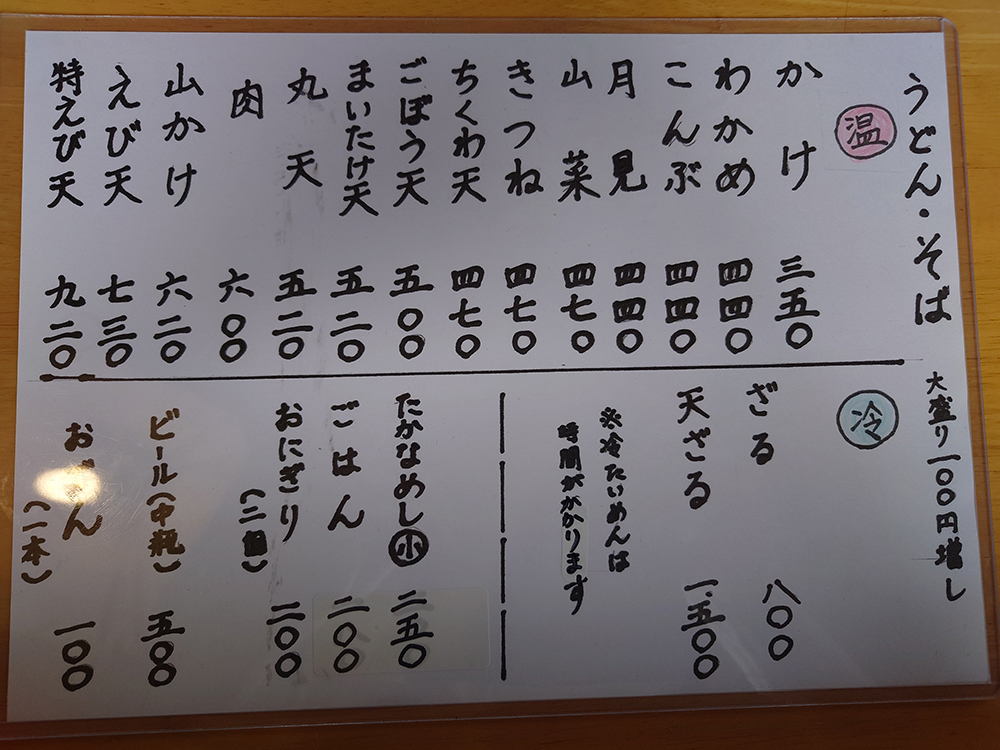 うどん・そば
温
かけ 三五〇
わかめ 四四〇
こんぶ 四四〇
月見 四四〇
山菜 四七〇
きつね 四七〇
ちくわ天 四七〇
ごぼう天 五〇〇
まいたけ天 五二〇
丸天 五二〇
肉 六〇〇
山かけ 六二〇
えび天 七三〇
特えび天 九二〇
大盛り一〇〇円増し
冷
ざる 八〇〇
天ざる 一、五〇〇
※冷たいめんは
時間がかかります
たかなめし小 二五〇
ごはん 二〇〇
おにぎり 二〇〇
(二個)
ビール(中瓶) 五〇〇
おでん 一〇〇
(一本)